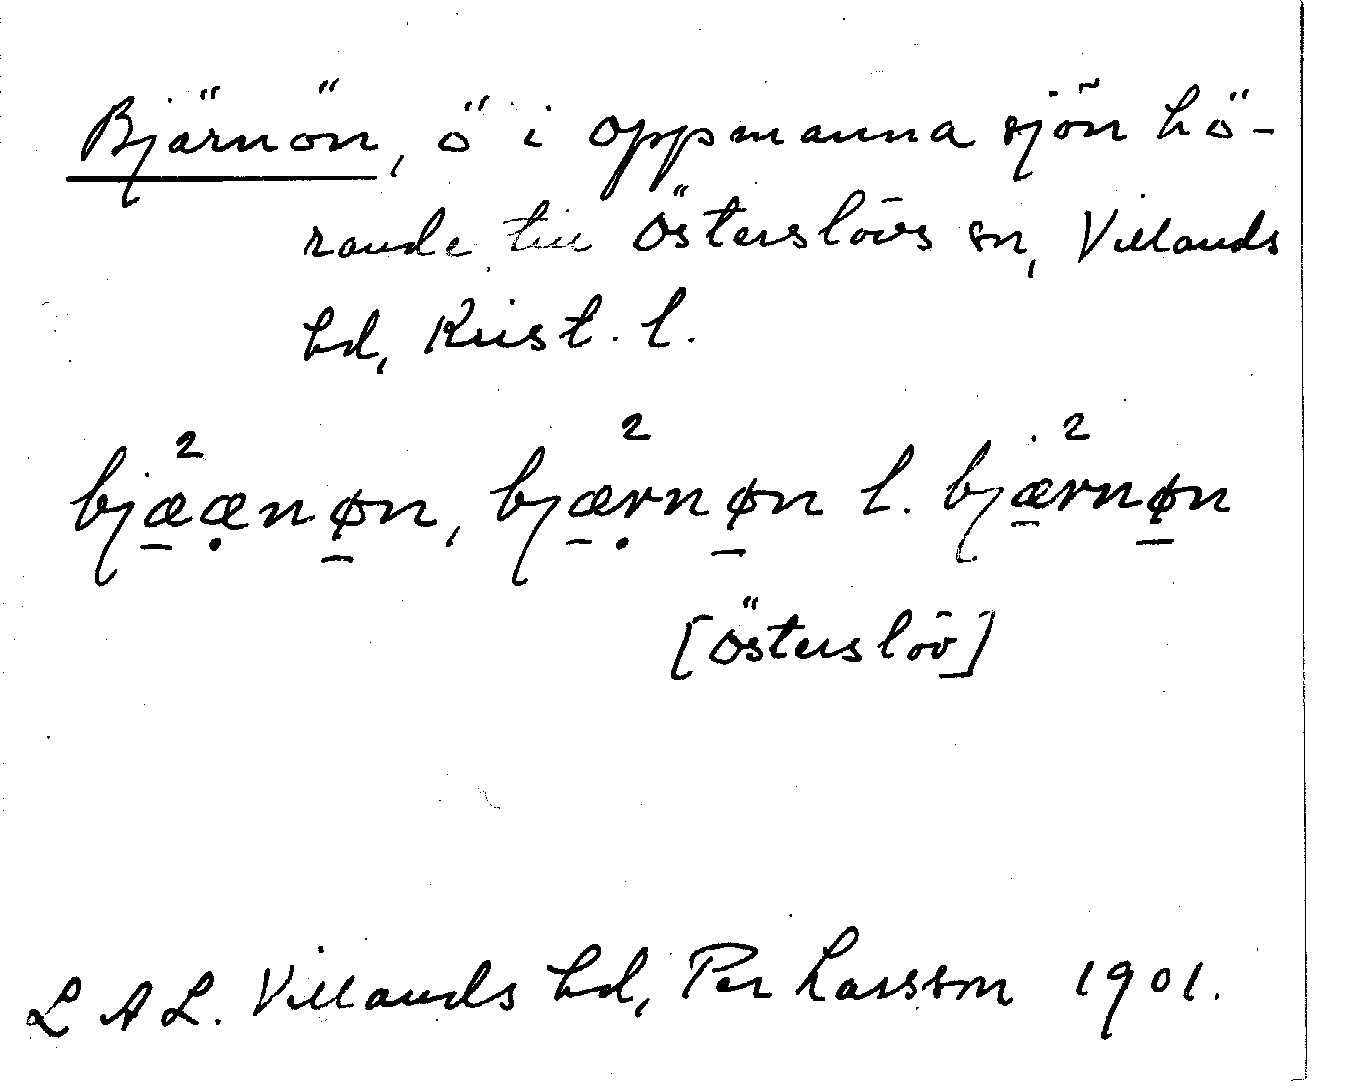 Björnön, ö i Oppmanna sjön hö-
rande till Österslövs sn, Villands
hd, Krist. l.
bjæ̱²æ̣nø̱n, bjæ̱²ṛnø̱n l. bjæ̱²rnø̱n
[Österslöv]
L A L. Villands hd, Per Larsson 1901.